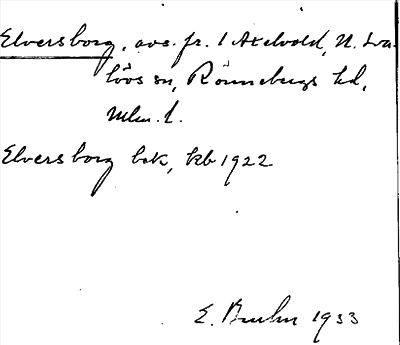 Elversborg, avs. fr. 1 Axelvold, N. Sva-
lövs sn, Rönnebergs hd,
Mlm. l.
Elversborg bsk, kb 1922
E. Bruhn 1933